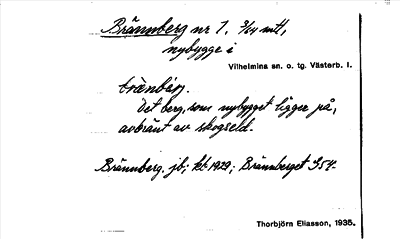 Brännberg nr 1, 3/64 mtl,
nybygge i
Vilhelmina sn. o. tg. Västerb. l.
Det berg, som nybygget ligger på,
avbränt av skogseld.
Brännberg. jb; kt 1929; Brännberget GSK
Thorbjörn Eliasson, 1935.